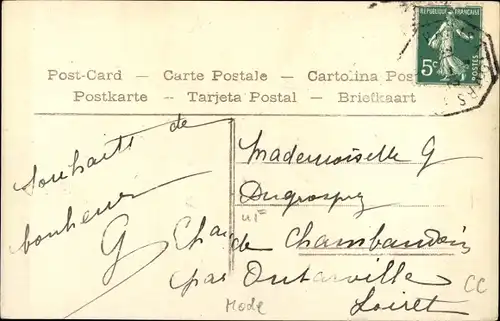 REPUBLIQUE FRANÇAISE
5c POSTES
Post-Card — Carte Postale — Cartolina Post
Postkarte — Tarjeta Postal — Briefkaart
Souhaits de
bonheur
G
Mademoiselle G
Chambaudoin
par Outarville
Loiret
Mode
CC